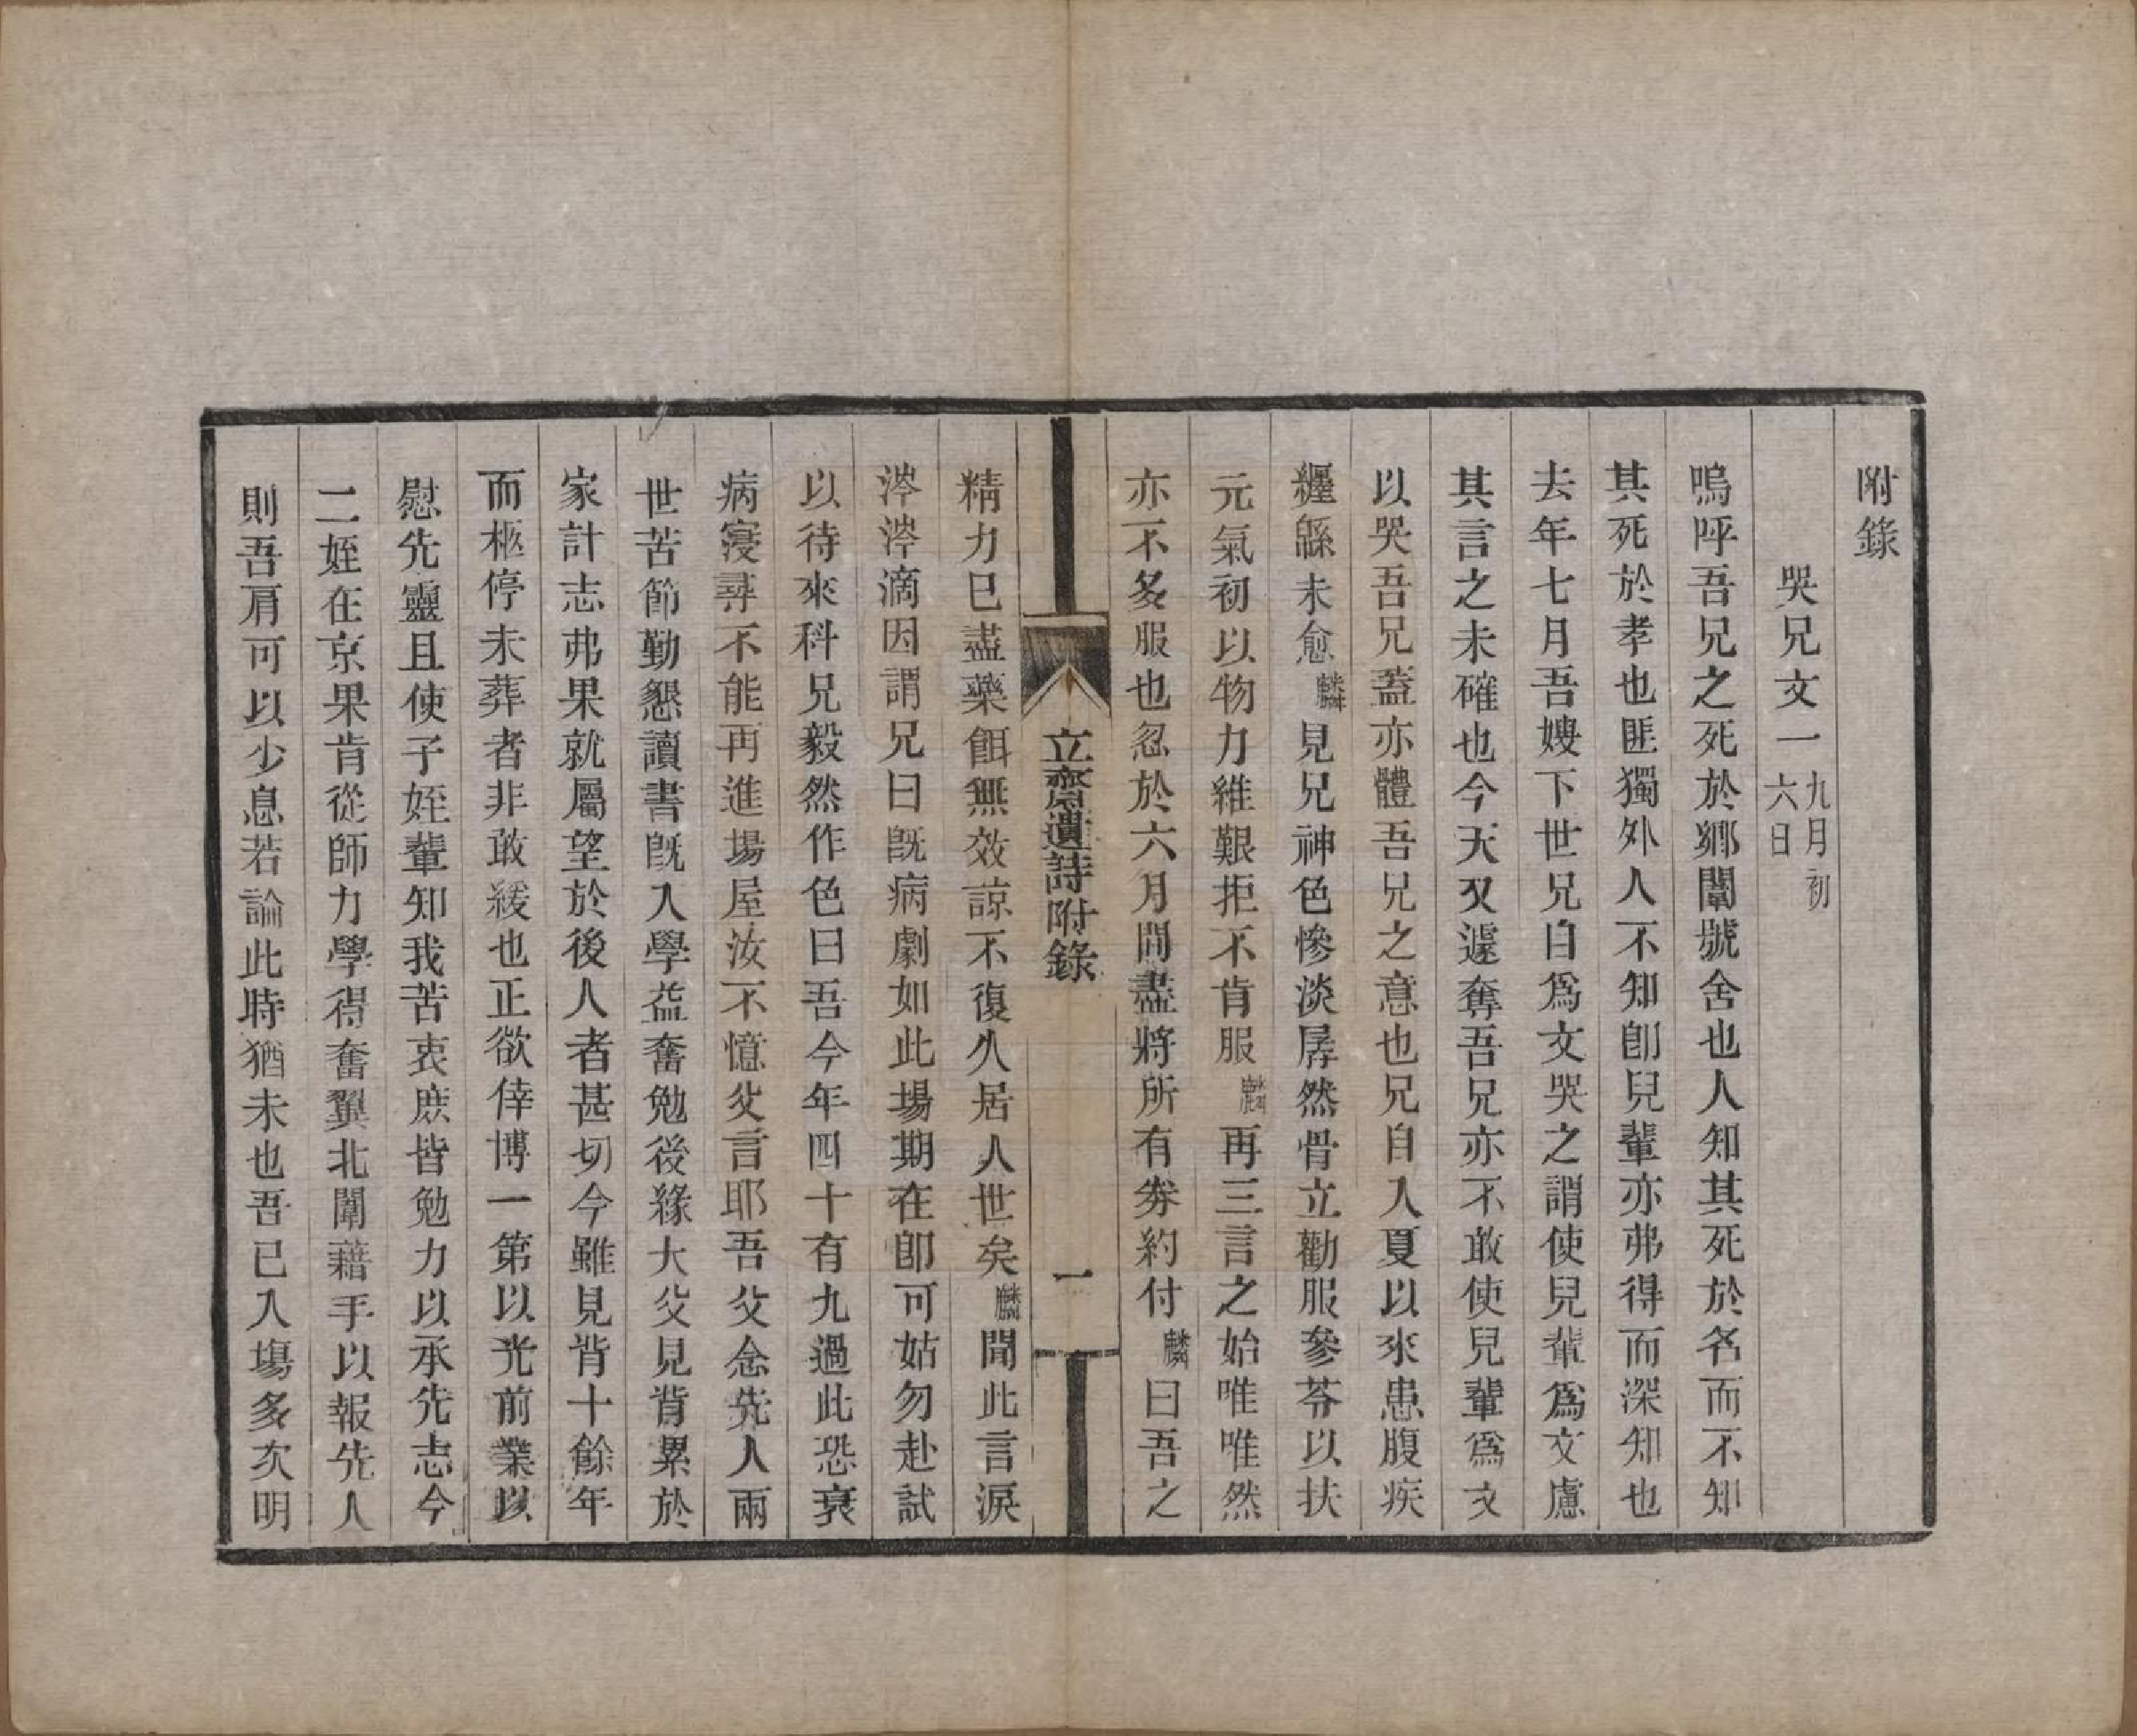 附錄
哭兄文一九月初六日
嗚呼吾兄之死於鄉闈號舍也人知其死於名而不知
其死於孝也匪獨外人不知卽兒輩亦弗得而深知也
去年七月吾嫂下世兄自爲文哭之謂使兒輩爲文慮
其言之未確也今天又遽奪吾兄亦不敢使兒輩爲文
以哭吾兄蓋亦體吾兄之意也兄自入夏以來患腹疾
纏緜未愈麟見兄神色慘淡孱然骨立勸服參苓以扶
元氣初以物力維艱拒不肯服麟再三言之始唯唯然
亦不多服也忽於六月間盡將所有券約付麟曰吾之
立齋遺詩附錄
一
精力已盡藥餌無效諒不復久居人世矣麟聞此言淚
涔涔滴因謂兄曰旣病劇如此場期在卽可姑勿赴試
以待來科兄毅然作色曰吾今年四十有九過此恐衰
病寖尋不能再進場屋汝不憶父言耶吾父念先人兩
世苦節勤懇讀書旣入學益奮勉後緣大父見背累於
家計志弗果就屬望於後人者甚切今雖見背十餘年
而柩停未葬者非敢緩也正欲倖博一第以光前業以
慰先靈且使子姪輩知我苦衷庶皆勉力以承先志今
二姪在京果肯從師力學得奮翼北闈藉手以報先人
則吾肩可以少息若論此時猶未也吾已入場多次明